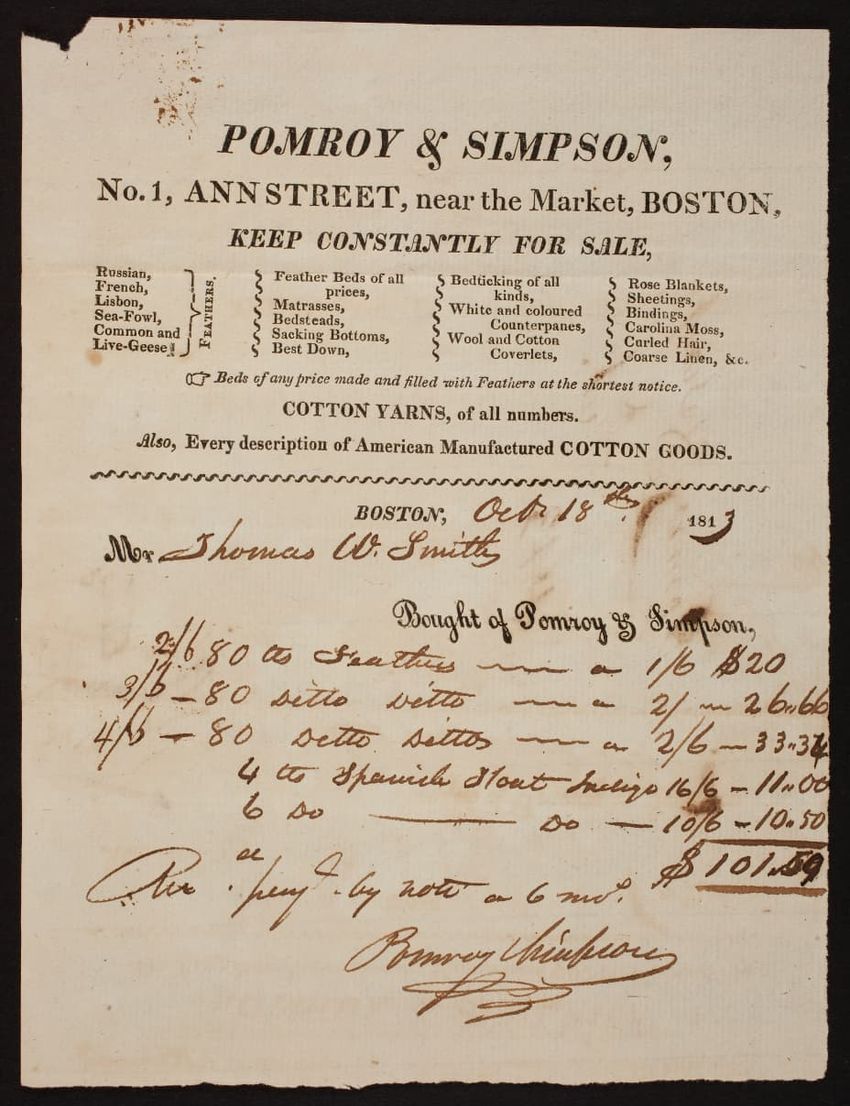 POMROY & SIMPSON,
No. 1, ANN STREET, near the Market, BOSTON,
KEEP CONSTANTLY FOR SALE,
Russian,
French,
Lisbon,
Sea-Fowl,
Common and
Live-Geese
FEATHERS.
Feather Beds of all
prices,
Matrasses,
Bedsteads,
Sacking Bottoms,
Best Down,
Bedticking of all
kinds,
White and coloured
Counterpanes,
Wool and Cotton
Coverlets,
Rose Blankets,
Sheetings,
Bindings,
Carolina Moss,
Curled Hair,
Coarse Linen, &c.
☞ Beds of any price made and filled with Feathers at the shortest notice.
COTTON YARNS, of all numbers.
Also, Every description of American Manufactured COTTON GOODS.
BOSTON, Octr 18th 1813
Mr Thomas W. Smith
Bought of Pomroy & Simpson,
2/6 80 lb Feathers — a 1/6 $20
3/6 — 80 Ditto Ditto — a 2/ — 26.66
4/6 — 80 Ditto Ditto — a 2/6 — 33.34
4 lb Spanish Float Indigo 16/6 — 11.00
6 Do — Do — 10/6 — 10.50
$101.50
Rec pay.t by note a 6 mos.
Pomroy & Simpson